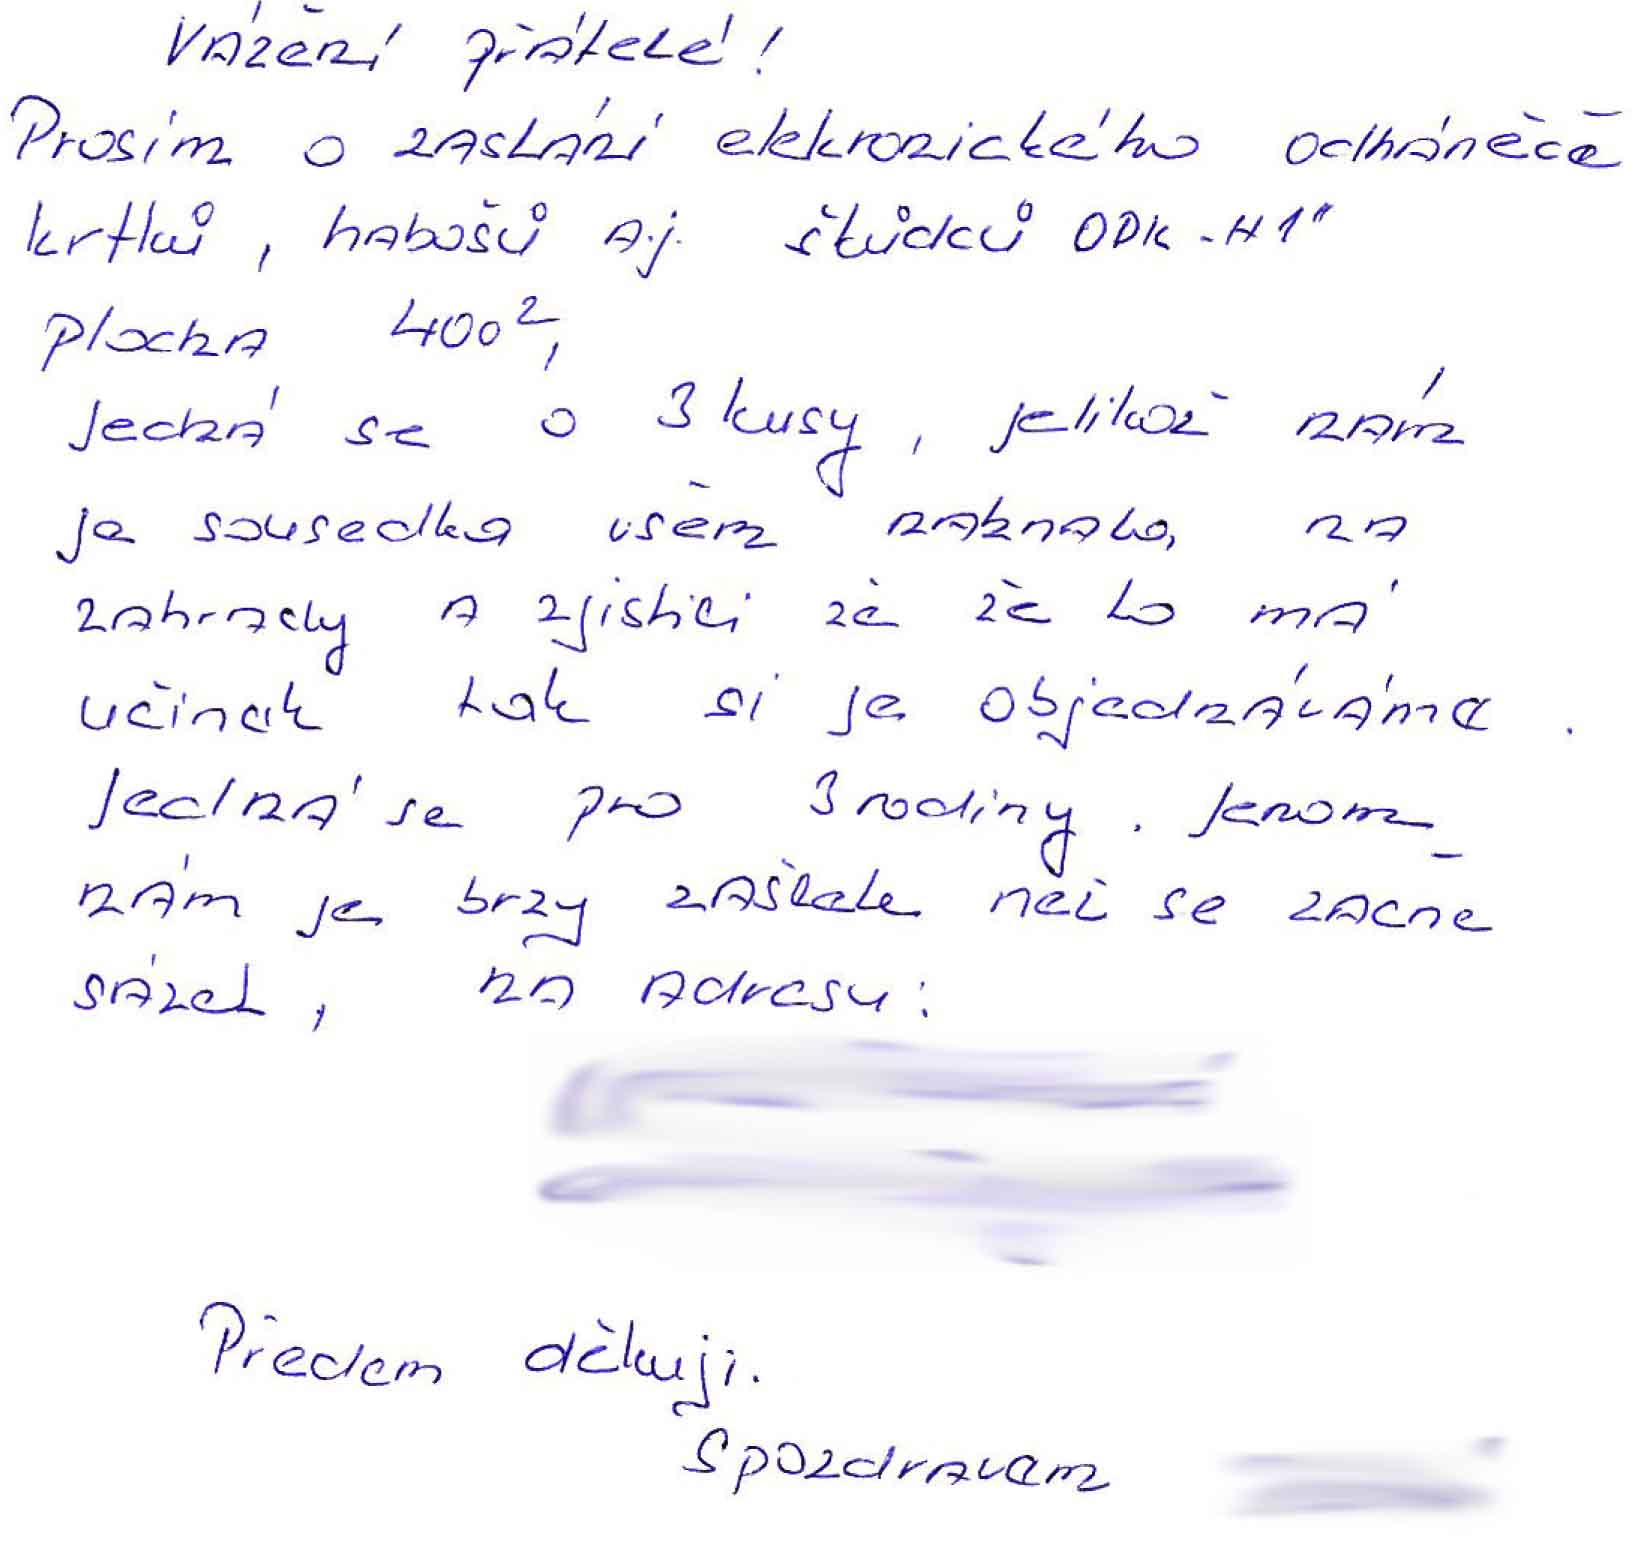 Vážení přátelé!
Prosím o zaslání elekronického odháněče
krtků, habošů aj. škůdců ODK-H1"
plocha 400²,
Jedná se o 3 kusy, jelikož nám
je sousedka všem nahnala, na
zahrady a zjistili že že to má
učinek tak si je objednáváme.
Jedná se pro 3 rodiny. Jenom
nám je brzy zašlete než se začne
sázet, na adresu:
Předem děkuji.
S pozdravem